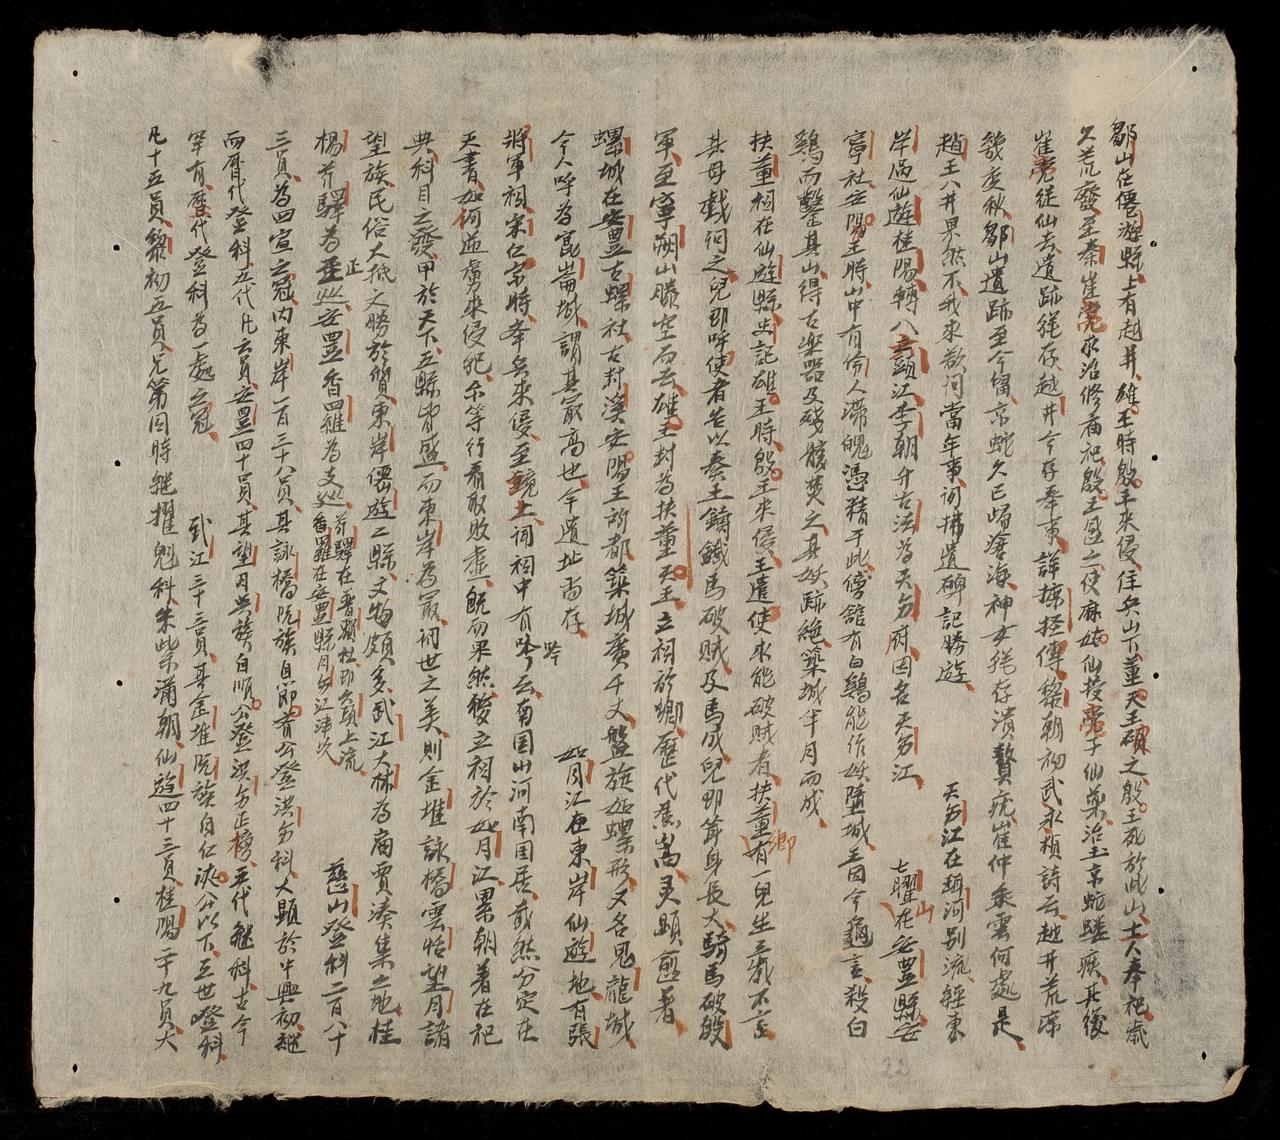 鄒山在僊遊縣上有越井雄王時殷王來侵住兵山下董天王破之殷王死於此山土人奉祀歲
久荒廢至秦崔亮求治修廟祀殷王遣之使麻姑仙授亮子仙藥治玉京蛇蟠疾其後
崔亮徒仙去遺跡猶存越井今存奉事詳摭怪傳黎朝初武永楨詩云越井荒凉
幾度秋鄒山遺跡至今留京蛇久已歸滄海神女猶存潰贅疣崔仲乘雲何處是
趙王八井果然不我來欲問當年事词掃遺碑記勝遊　天分江在珥河别流經東
岸過仙遊桂陽轉八六頭江李朝升古法為天分府因名天分江　七曜山在安豊縣安
寧社安陽王時山中有伶人滯魄憑精于此傍舘有白鷄能作妖墮城王因令龜言殺白
鷄而鑿其山得古樂器及殘骸焚之其妖跡絶築城半月而成
扶董祠在仙遊縣史記雄王時殷王來侵王遣使求能破賊者扶董鄉有一兒生三歲不言
其母戯詞之兒即呼使者告以奏王鑄鐵馬破賊及馬成兒即聳身長大騎馬破殷
軍至寧朔山騰空而去雄王封為扶董天王立祠於鄉歷代蒸嵩灵顕愈著
螺城在安豊古螺社古封溪安陽王所都築城廣千丈盤旋如螺形又名思龍城
今人呼為崑崙城謂其最高也今遺址尚存　如月江在東岸仙遊地有張
將軍祠宋仁宗時舉兵來侵至境上詞祠中有吟云南国山河南国居截然分定在
天書如何逆虜來侵犯尔等行看取敗虚既而果然後立祠於如月江累朝著在祀
典科目之發甲於天下五縣皆盛而東岸為最詞世之美則金堆詠橋雲恬望月諸
望族民俗大抵之勝於質東岸僊遊二縣文物頗多武江大林為商賈湊集之地桂
楊芥驛為正巡安豊香羅為支巡芥驛在普頭社即六頭上流香羅在安豊縣月分江津次　慈山登科二百八十
三員為四宣之冠内東岸一百三十八員其詠橋阮族自節者公登洪分科大顕於中興初继
而暦代登科五代凡六員安豊四十員其望月吴族自順公登洪分正榜五代継科古今
罕有歷代登科為一處之冠　武江三十三員其金堆阮族自仁浹公以下三世登科
凡十五員黎初五員兄第因時継擢魁科朱紫滿朝仙遊四十三員桂陽二十九員大
22